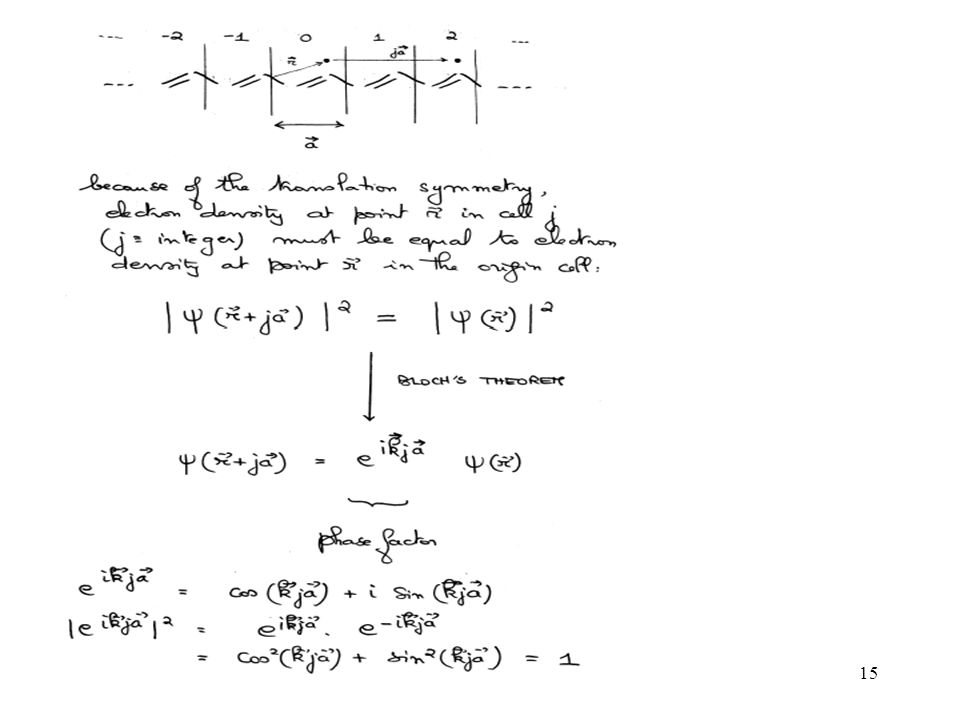 --- -2 -1 0 1 2 ---
r⃗ ja⃗
--- ---
a⃗
because of the translation symmetry,
electron density at point r⃗ in cell j
(j = integer) must be equal to electron
density at point r⃗ in the origin cell:
|ψ(r⃗+ja⃗)|² = |ψ(r⃗)|²
BLOCH'S THEOREM
ψ(r⃗+ja⃗) = e^{ik⃗ja⃗} ψ(r⃗)
phase factor
e^{ik⃗ja⃗} = cos(k⃗ja⃗) + i sin(k⃗ja⃗)
|e^{ik⃗ja⃗}|² = e^{ik⃗ja⃗} . e^{-ik⃗ja⃗}
= cos²(k⃗ja⃗) + sin²(k⃗ja⃗) = 1
15